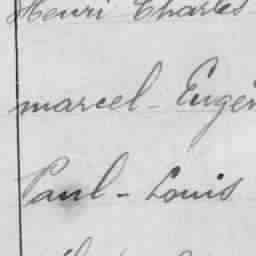 Henri Charles
marcel - Eugèn
Paul - Louis